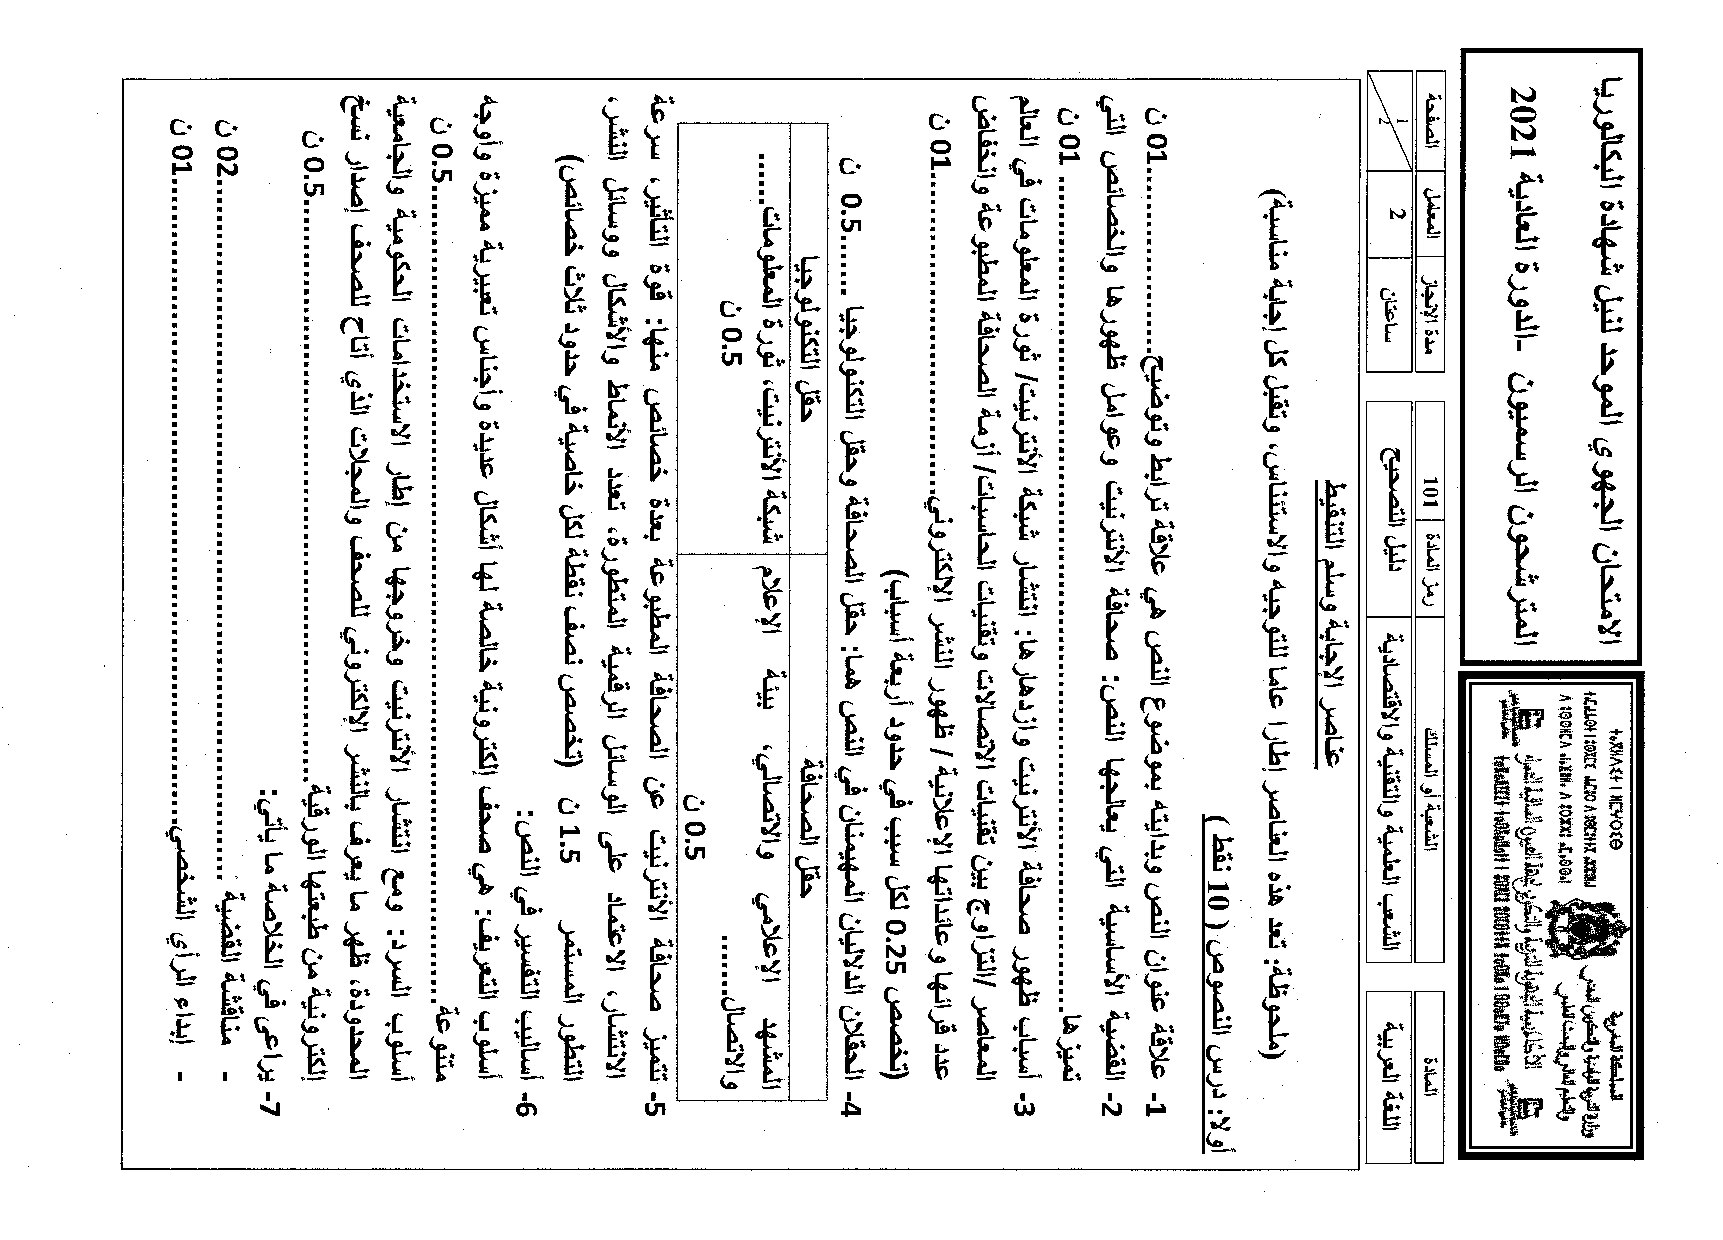 الامتحان الجهوي الموحد لنيل شهادة البكالوريا
المترشحون الرسميون -الدورة العادية 2021
المملكة المغربية
وزارة التربية الوطنية والتكوين المهني
والتعليم العالي والبحث العلمي
المادة
اللغة العربية
الشعبة أو المسلك
الشعب العلمية والتقنية والاقتصادية
رمز المادة 101
دليل التصحيح
مدة الإنجاز المعامل الصفحة
ساعتان 2 1/2
عناصر الإجابة وسلم التنقيط
(ملحوظة: تعد هذه العناصر إطارا عاما للتوجيه والاستئناس، وتقبل كل إجابة مناسبة)
أولا: درس النصوص ( 10 نقط )
1- علاقة عنوان النص وبدايته بموضوع النص هي علاقة ترابط وتوضيح........................01 ن
2- القضية الأساسية التي يعالجها النص: صحافة الأنترنيت وعوامل ظهورها والخصائص التي
تميزها........................................................ 01 ن
3- أسباب ظهور صحافة الأنترنيت وازدهارها: انتشار شبكة الأنترنيت/ ثورة المعلومات في العالم
المعاصر /التزاوج بين تقنيات الاتصالات وتقنيات الحاسبات/ أزمة الصحافة المطبوعة وانخفاض
عدد قرائها وعائداتها الإعلانية / ظهور النشر الإلكتروني................................01 ن
(تخصص 0.25 لكل سبب في حدود أربعة أسباب)
4- الحقلان الدلاليان المهيمنان في النص هما: حقل الصحافة وحقل التكنولوجيا ......0.5 ن
حقل الصحافة حقل التكنولوجيا
المشهد الإعلامي والاتصالي، بيئة الإعلام شبكة الأنترنيت، ثورة المعلومات......
والاتصال........ 0.5 ن 0.5 ن
5- تتميز صحافة الأنترنيت عن الصحافة المطبوعة بعدة خصائص منها: قوة التأثير، سرعة
الانتشار، الاعتماد على الوسائل الرقمية المتطورة، تعدد الأنماط والأشكال ووسائل النشر،
التطور المستمر 1.5 ن (تخصص نصف نقطة لكل خاصية في حدود ثلاث خصائص)
6- أساليب التفسير في النص:
أسلوب التعريف: هي صحف إلكترونية خالصة لها أشكال عديدة وأجناس تعبيرية مميزة وأوجه
متنوعة........................................................0.5 ن
أسلوب السرد: ومع انتشار الأنترنيت وخروجها من إطار الاستخدامات الحكومية والجامعية
المحدودة، ظهر ما يعرف بالنشر الإلكتروني للصحف والمجلات الذي أتاح للصحف إصدار نسخ
إلكترونية من طبعتها الورقية................................................0.5 ن
7- يراعى في الخلاصة ما يأتي:
- مناقشة القضية ........................................................02 ن
- إبداء الرأي الشخصي........................................................01 ن